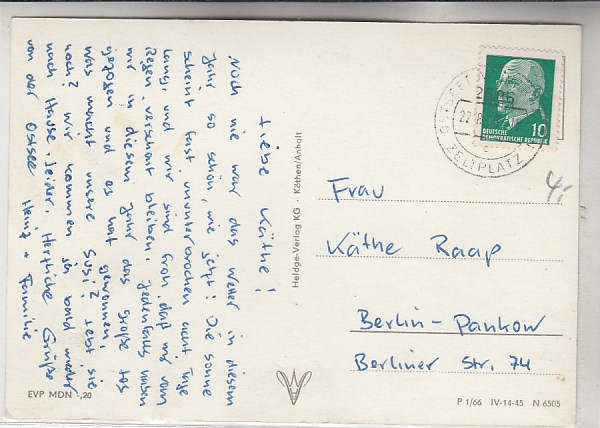 Liebe Käthe!
Noch nie war das Wetter in diesem
Jahr so schön, wie jetzt! Die Sonne
scheint fast ununterbrochen acht Tage
lang, und wir sind froh, daß wir vom
Regen verschont bleiben. Jedenfalls haben
wir in diesem Jahr das große Los
gezogen und es hat gewonnen.
Was macht unsere Susi? Lebt sie
noch? Wir kommen ja bald wieder
nach Hause, leider. Herzliche Grüße
von der Ostsee Heinz + Familie
EVP MDN -,20
Heldge-Verlag KG · Köthen/Anhalt
ZELTPLATZ
10
DEUTSCHE
DEMOKRATISCHE REPUBLIK
4,-
Frau
Käthe Raap
Berlin-Pankow
Berliner Str. 74
P 1/66 IV-14-45 N 6505